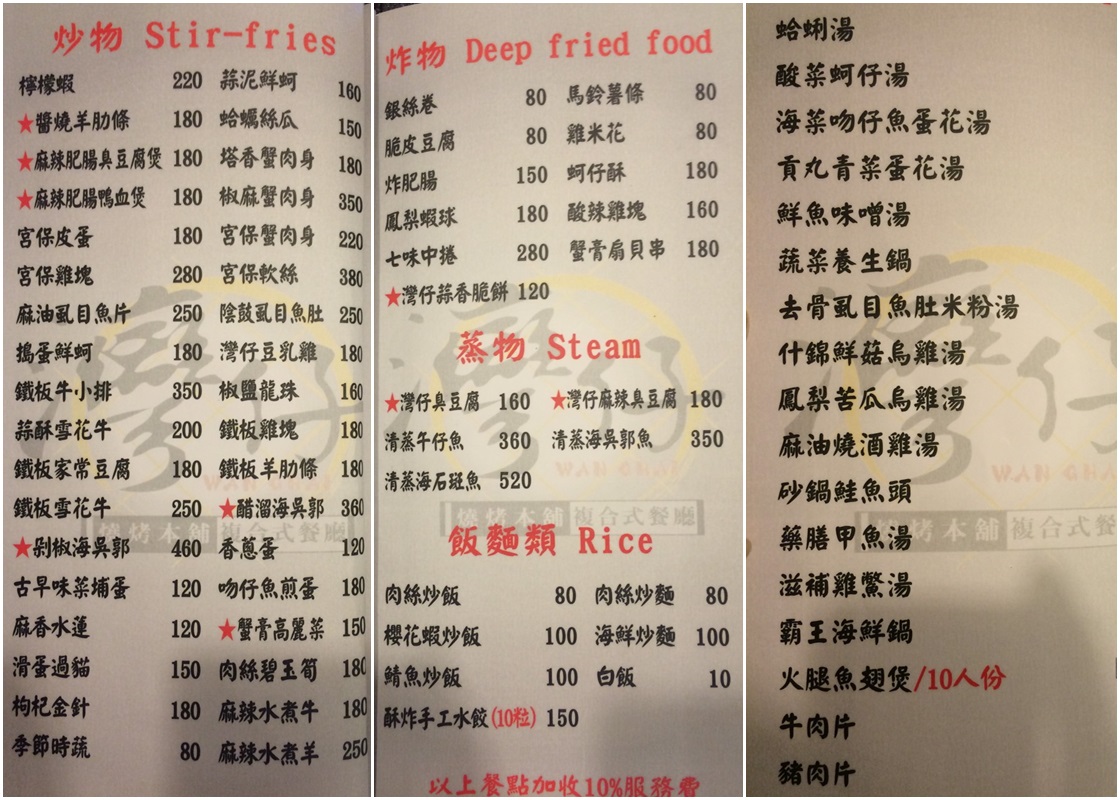 炒物 Stir-fries
檸檬蝦 220 蒜泥鮮蚵 160
★醬燒羊肋條 180 蛤蠣絲瓜 150
★麻辣肥腸臭豆腐煲 180 塔香蟹肉身 180
★麻辣肥腸鴨血煲 180 椒麻蟹肉身 350
宮保皮蛋 180 宮保蟹肉身 220
宮保雞塊 280 宮保軟絲 380
麻油虱目魚片 250 陰鼓虱目魚肚 250
搗蛋鮮蚵 180 灣仔豆乳雞 180
鐵板牛小排 350 椒鹽龍珠 160
蒜酥雪花牛 200 鐵板雞塊 180
鐵板家常豆腐 180 鐵板羊肋條 180
鐵板雪花牛 250 ★醋溜海吳郭 360
★剁椒海吳郭 460 香蔥蛋 120
古早味菜埔蛋 120 吻仔魚煎蛋 180
麻香水蓮 120 ★蟹膏高麗菜 150
滑蛋過貓 150 肉絲碧玉筍 180
枸杞金針 180 麻辣水煮牛 180
季節時蔬 80 麻辣水煮羊 250
炸物 Deep fried food
銀絲卷 80 馬鈴薯條 80
脆皮豆腐 80 雞米花 80
炸肥腸 150 蚵仔酥 180
鳳梨蝦球 180 酸辣雞塊 160
七味中捲 280 蟹膏扇貝串 180
★灣仔蒜香脆餅 120
蒸物 Steam
★灣仔臭豆腐 160 ★灣仔麻辣臭豆腐 180
清蒸午仔魚 360 清蒸海吳郭魚 350
清蒸海石斑魚 520
飯麵類 Rice
肉絲炒飯 80 肉絲炒麵 80
櫻花蝦炒飯 100 海鮮炒麵 100
鯖魚炒飯 100 白飯 10
酥炸手工水餃(10粒) 150
以上餐點加收10%服務費
蛤蜊湯
酸菜蚵仔湯
海菜吻仔魚蛋花湯
貢丸青菜蛋花湯
鮮魚味噌湯
蔬菜養生鍋
去骨虱目魚肚米粉湯
什錦鮮菇烏雞湯
鳳梨苦瓜烏雞湯
麻油燒酒雞湯
砂鍋鮭魚頭
藥膳甲魚湯
滋補雞鱉湯
霸王海鮮鍋
火腿魚翅煲/10人份
牛肉片
豬肉片
灣仔
WAN CHAI
燒烤本舖 複合式餐廳